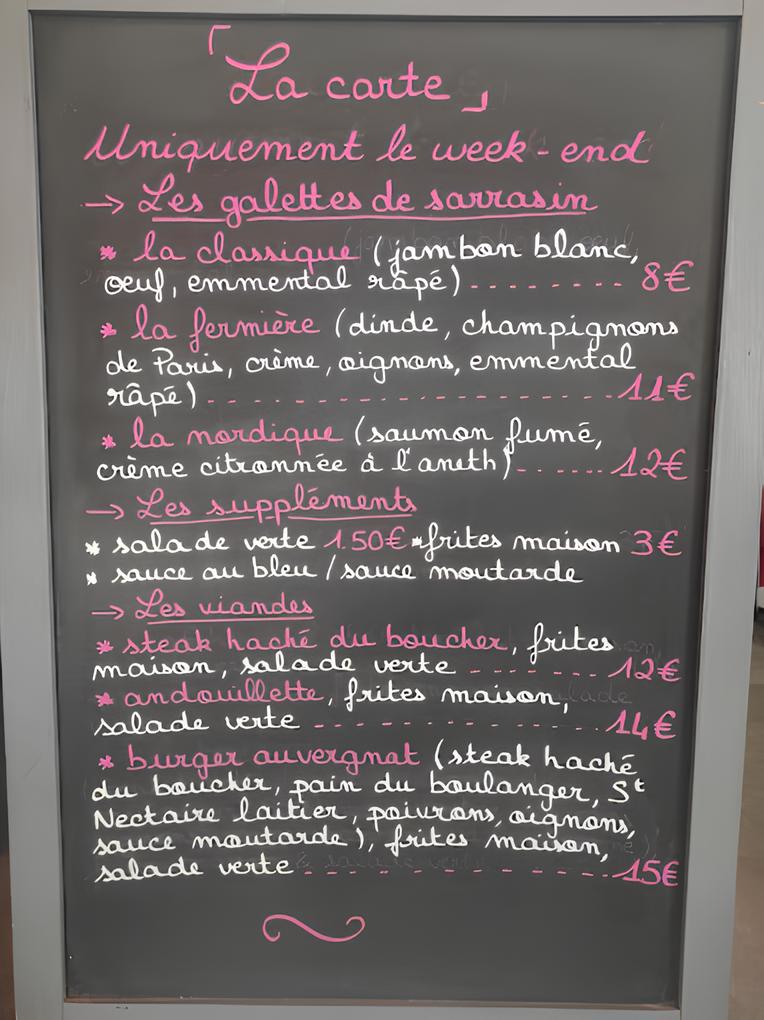 「La carte」
Uniquement le week-end
→ Les galettes de sarrasin
* la classique (jambon blanc,
oeuf, emmental râpé) -------- 8€
* la fermière (dinde, champignons
de Paris, crème, oignons, emmental
râpé) -------------------- 11€
* la nordique (saumon fumé,
crème citronnée à l'aneth) ------ 12€
→ Les suppléments
* salade verte 1.50€ * frites maison 3€
* sauce au bleu / sauce moutarde
→ Les viandes
* steak haché du boucher, frites
maison, salade verte -------- 12€
* andouillette, frites maison,
salade verte --------------- 14€
* burger auvergnat (steak haché
du boucher, pain du boulanger, St
Nectaire laitier, poivrons, oignons,
sauce moutarde), frites maison,
salade verte --------------- 15€